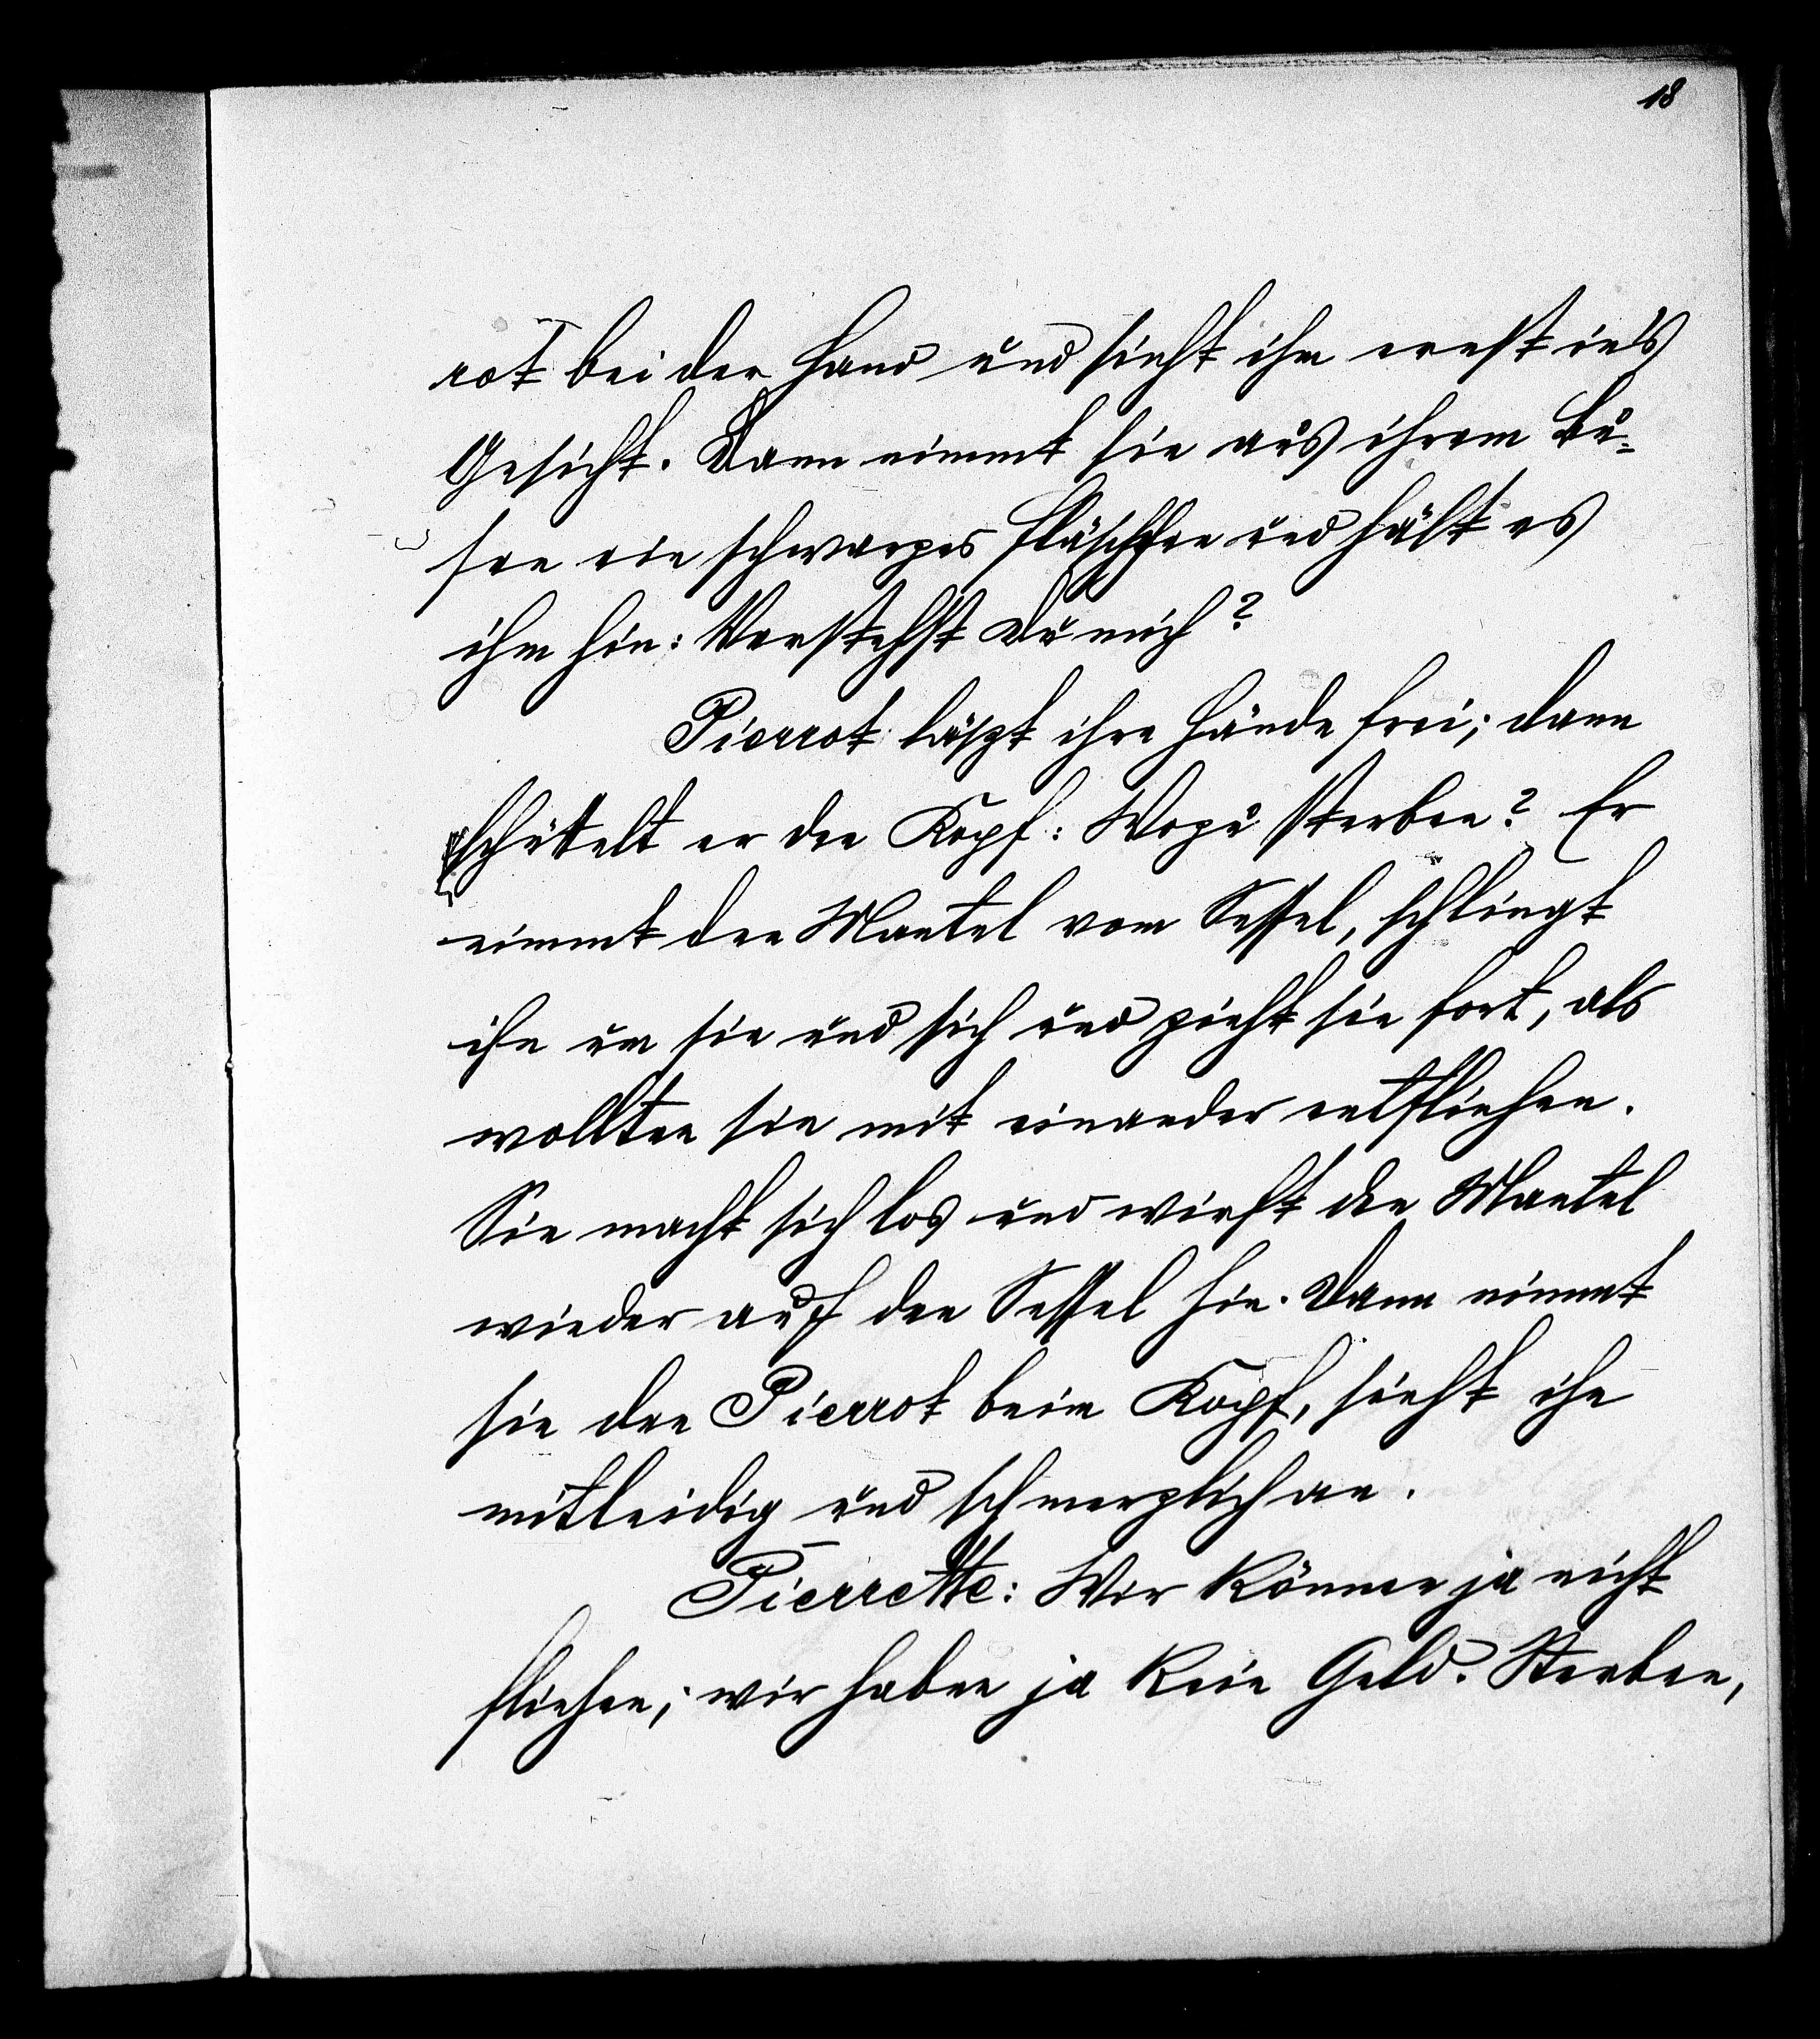 18
rot bei der Hand und sieht ihm ernst in's
Gesicht. Dann nimmt sie aus ihrem Bu-
sen ein schwarzes Fläschchen und hält es
ihm hin: Verstehst Du mich?
Pierrot läszt ihre Hände frei; dann
schüttelt er den Kopf: Wozu sterben? Er
nimmt den Mantel vom Sessel, schlingt
ihn um sie und sich und zieht sie fort, als
wollten sie mit einander entfliehen.
Sie macht sich los und wirft den Mantel
wieder auf den Sessel hin. Dann nimmt
sie den Pierrot beim Kopf, sieht ihn
mitleidig und schmerzlich an.
Pierrette: Wir können ja nicht
fliehen; wir haben ja kein Geld. Sterben,